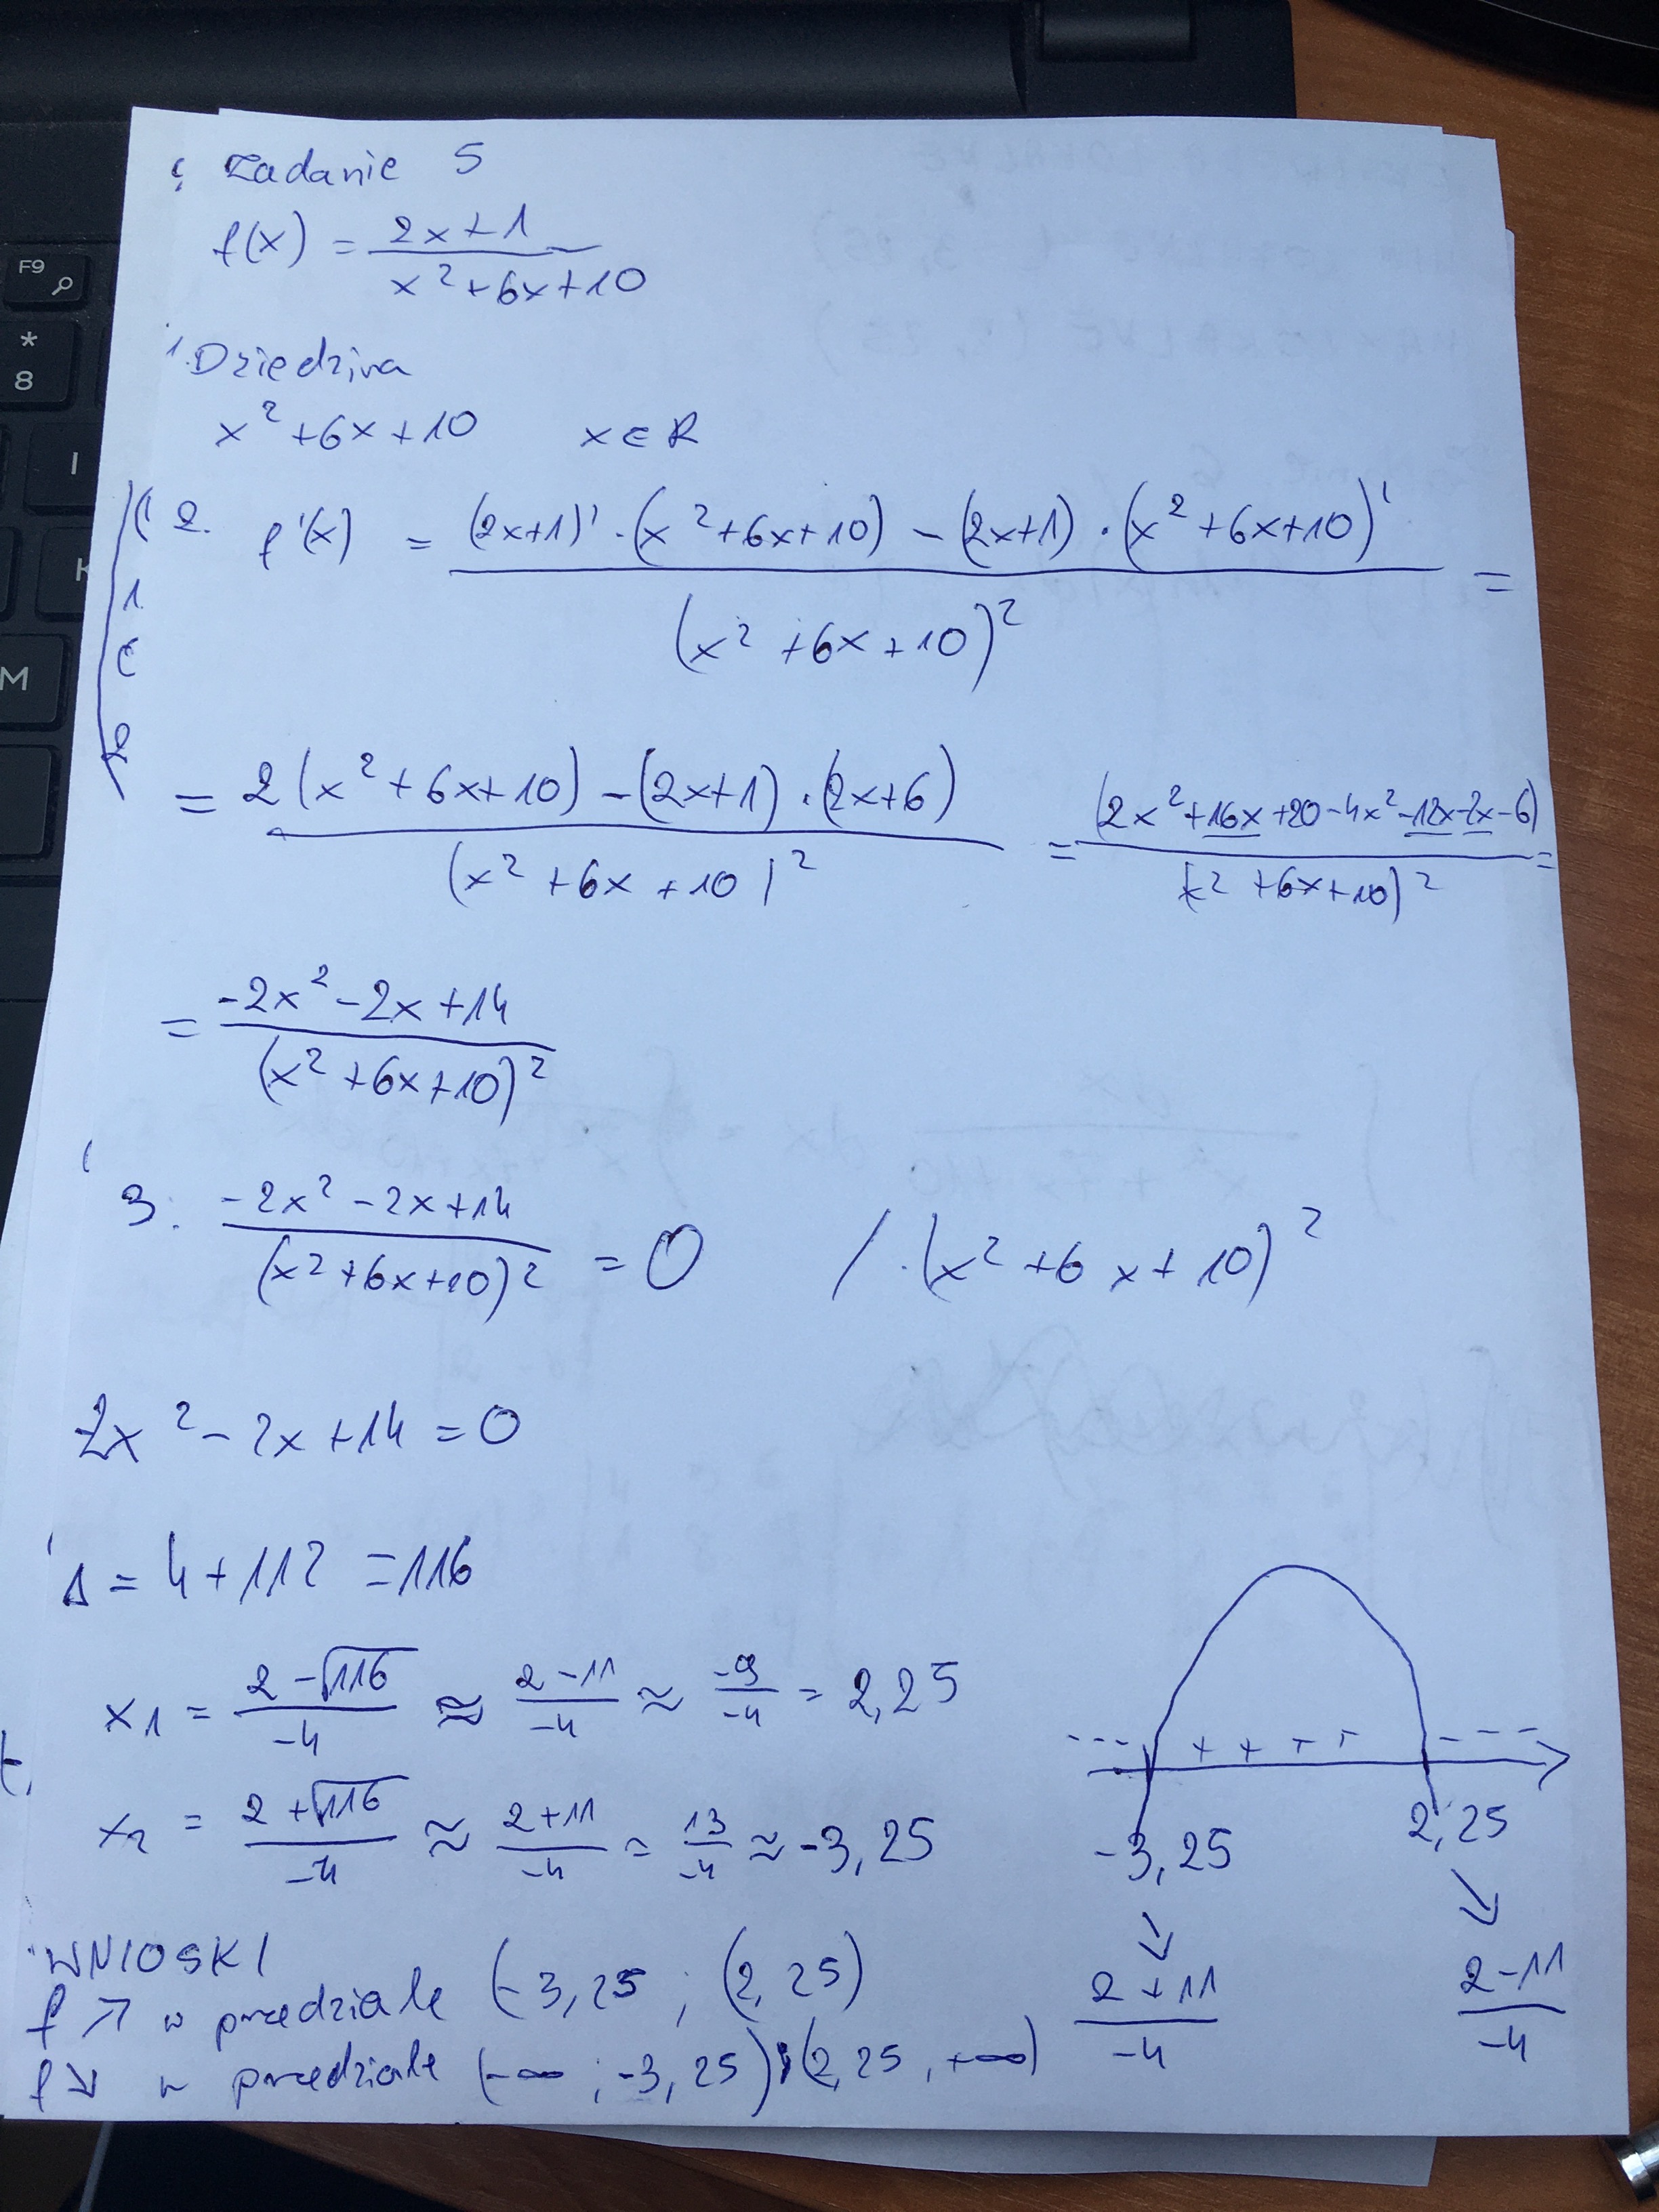 F9
*
8
I
K
M
Zadanie 5
f(x) = \frac{2x+1}{x^2+6x+10}
1. Dziedzina
x^2+6x+10 x∈R
2. f'(x) = \frac{(2x+1)'·(x^2+6x+10)-(2x+1)·(x^2+6x+10)'}{(x^2+6x+10)^2} =
= \frac{2(x^2+6x+10)-(2x+1)·(2x+6)}{(x^2+6x+10)^2} = \frac{(2x^2+16x+20-4x^2-12x-2x-6)}{(x^2+6x+10)^2} =
= \frac{-2x^2-2x+14}{(x^2+6x+10)^2}
3. \frac{-2x^2-2x+14}{(x^2+6x+10)^2} = 0 /·(x^2+6x+10)^2
2x^2-2x+14=0
Δ = 4+112 = 116
x_1 = \frac{2-\sqrt{116}}{-4} ≈ \frac{2-11}{-4} ≈ \frac{-9}{-4} = 2,25
x_2 = \frac{2+\sqrt{116}}{-4} ≈ \frac{2+11}{-4} = \frac{13}{-4} ≈ -3,25
--- ++++ ---
-3,25 2,25
↘ ↘
\frac{2+11}{-4} \frac{2-11}{-4}
WNIOSKI
f ↗ w przedziale (-3,25 ; (2,25)
f ↘ w przedziale (-∞ ; -3,25) i (2,25, +∞)